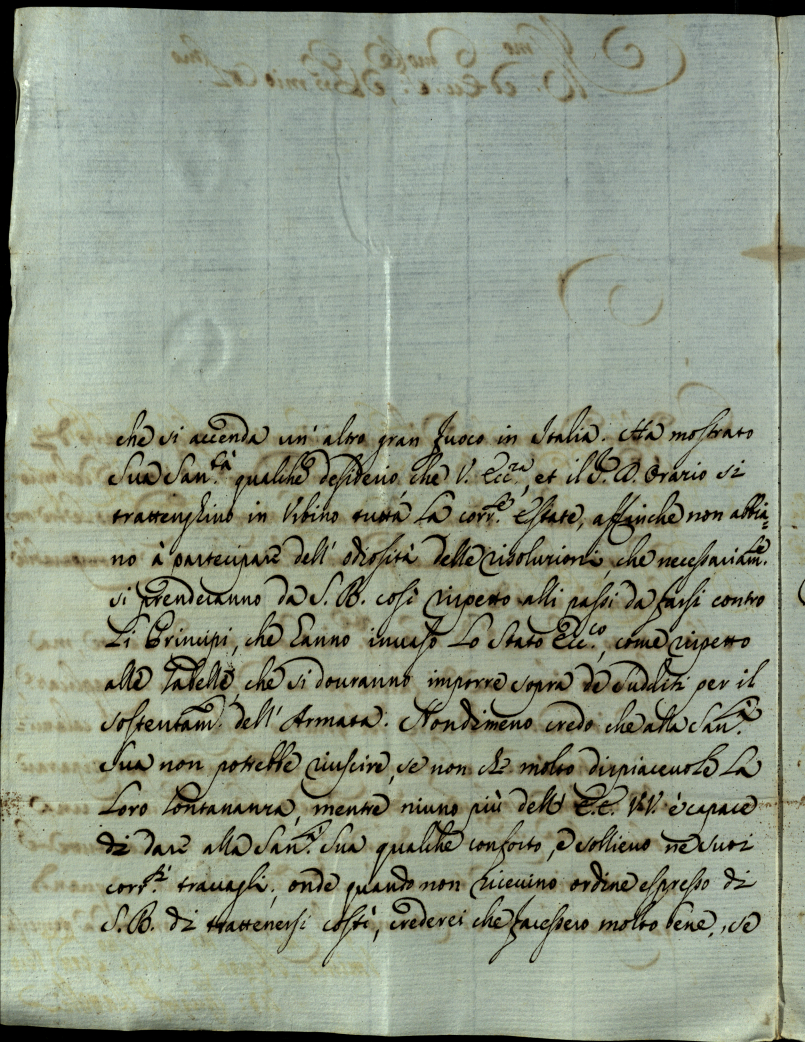 che si accenda un' altro gran fuoco in Italia. Ha mostrato
Sua San.tà qualche desiderio, che V. Ecc.za, et il S.r D. Orazio si
trattenghino in Vrbino tutta la corr.te Estate, affinche non abbia=
no à partecipare dell' odiosità delle risoluzioni, che necessariam.te
si prenderanno da S. B. così rispetto alli passi da farsi contro
Li Principi, che hanno inuaso Lo Stato Ecc.co, come rispetto
alle gabelle, che si douranno imporre sopra de sudditi per il
sostentam.to dell' Armata. Nondimeno credo che alla San.tà
Sua non potrebbe riuscire, se non che molto dispiaceuole La
Loro Lontananza, mentre niuno più dell' E.E. V.V. è capace
di dare alla San.tà Sua qualche conforto, e sollieuo ne suoi
corr.ti trauagli; onde quando non riceuino ordine espresso di
S. B. di trattenersi costì, crederei che facessero molto bene, se